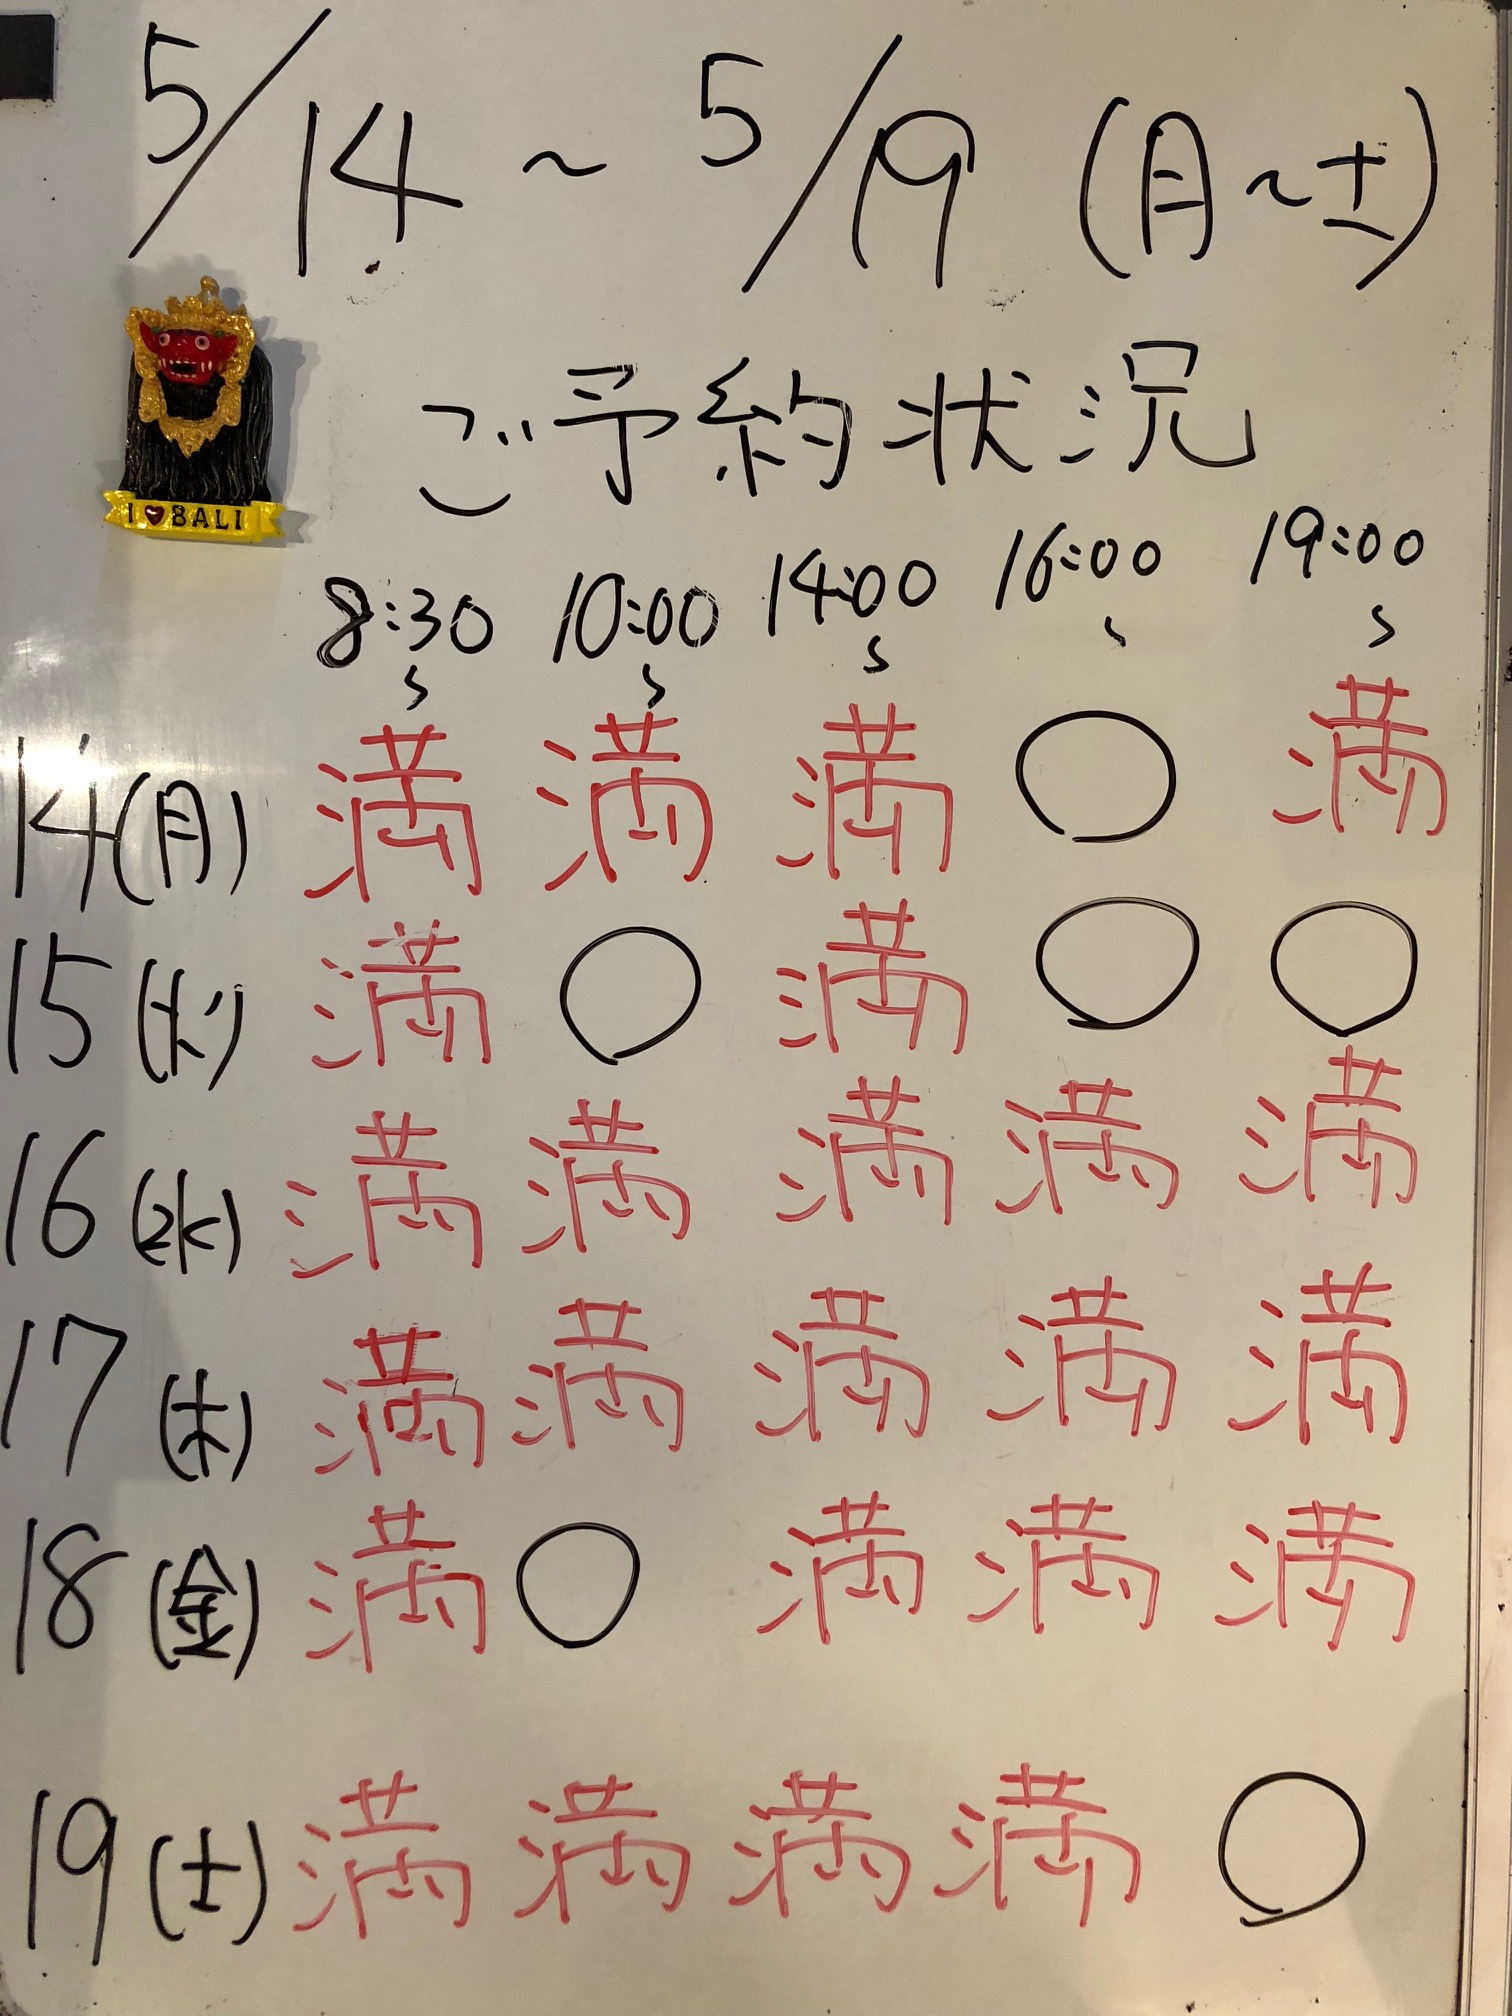 5/14 ~ 5/19 (月~土)
ご予約状況
I ♥ BALI
8:30~ 10:00~ 14:00~ 16:00~ 19:00~
14(月) 満 満 満 ○ 満
15(火) 満 ○ 満 ○ ○
16(水) 満 満 満 満 満
17(木) 満 満 満 満 満
18(金) 満 ○ 満 満 満
19(土) 満 満 満 満 ○